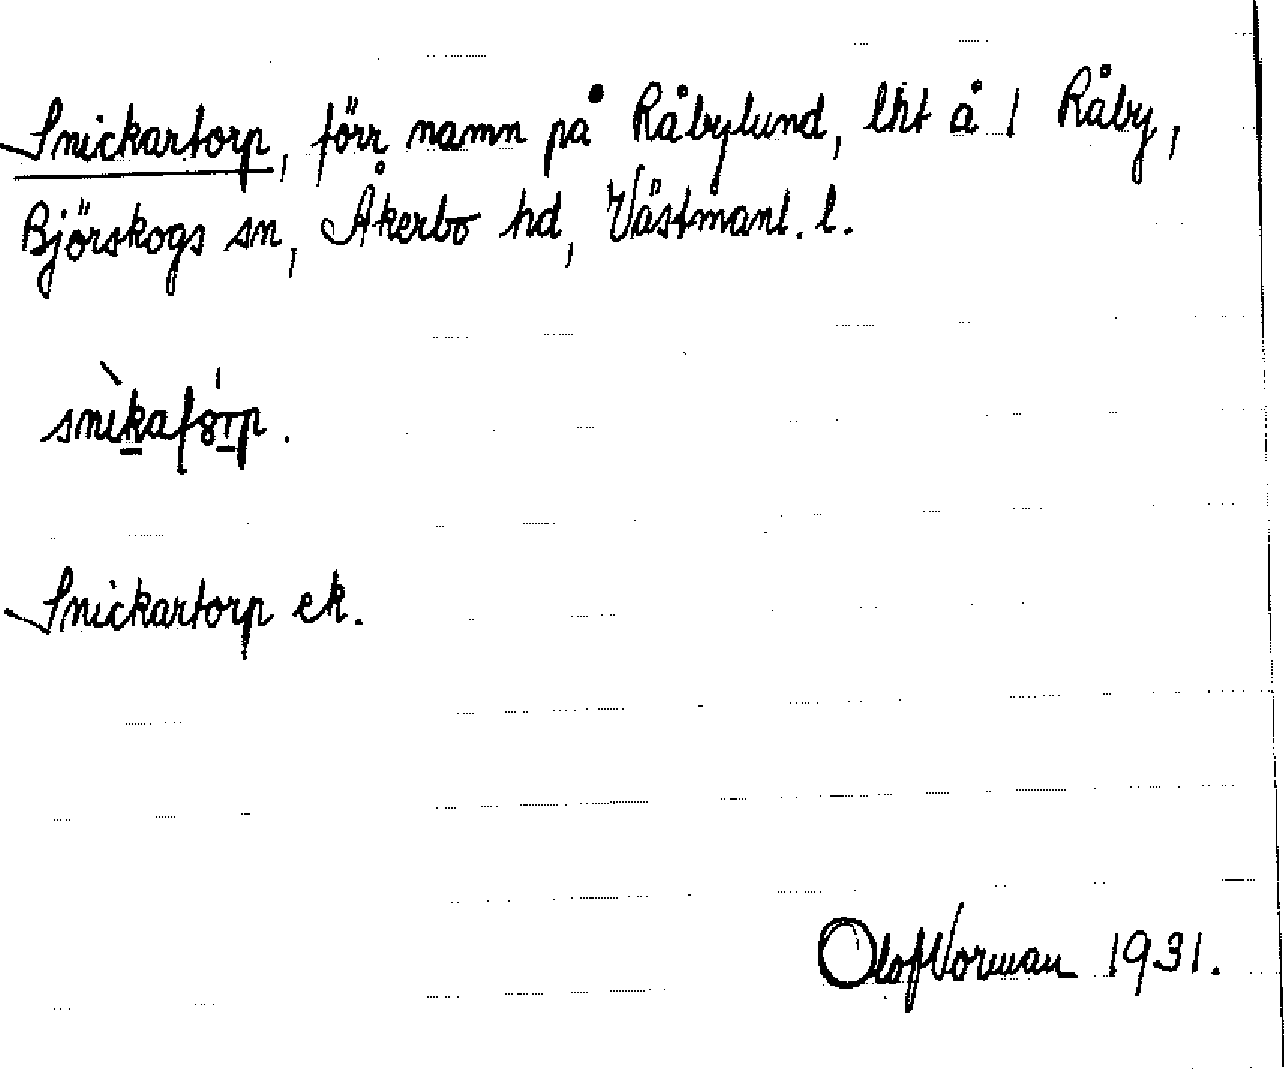 Snickartorp, förr namn på Råbylund, lht å 1 Råby,
Björskogs sn, Åkerbo hd, Västmanl. l.
Snickartorp ek.
Olof Norman 1931.